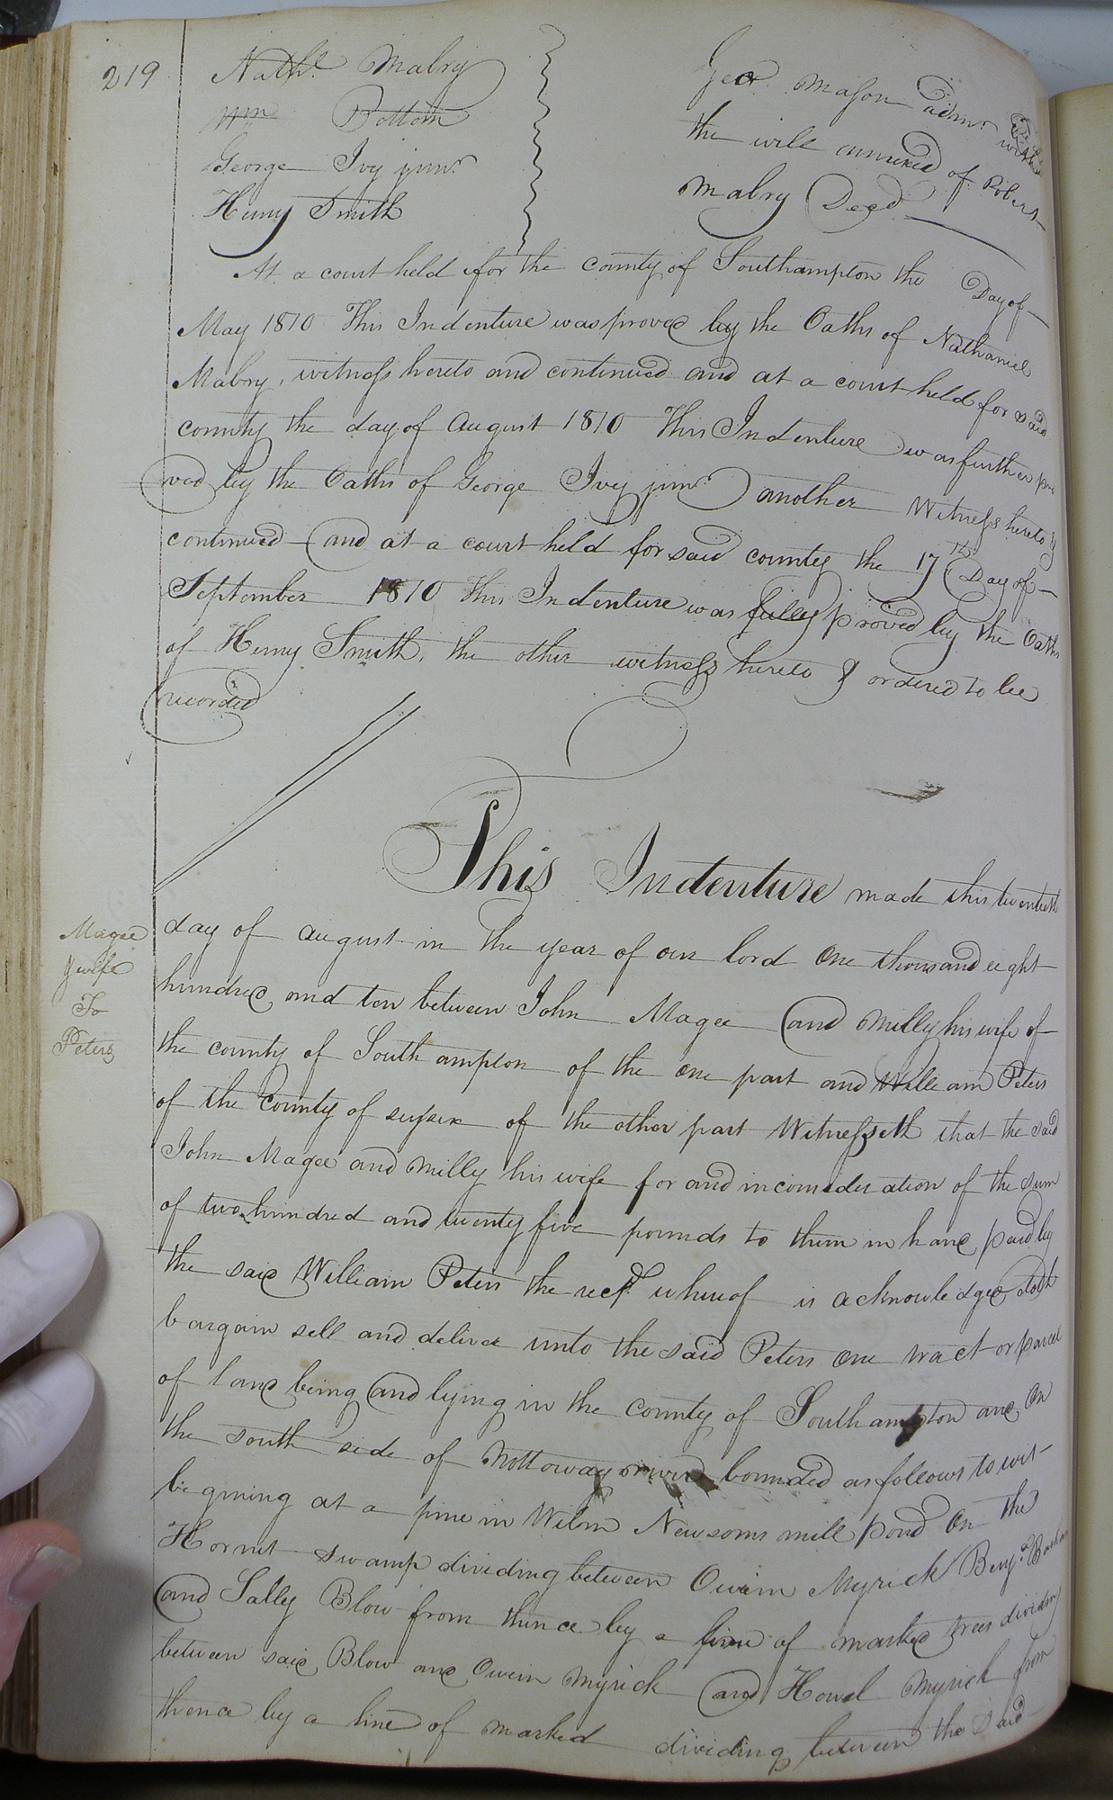 219
Nathl. Mabry
Wm Bottom
George Ivy junr.
Henry Smith
Geo. Mason admr. with
the will annexed of Robert
Mabry Decd
At a court held for the county of Southampton the Day of
May 1810 This Indenture was proved by the Oaths of Nathaniel
Mabry, witness hereto and continued and at a court held for said
county the day of August 1810 This Indenture was further pro
ved by the Oaths of George Ivy junr. another Witness hereto &
continued and at a court held for said county the 17th Day of
September 1810 this Indenture was fully proved by the Oaths
of Henry Smith, the other witness hereto & ordered to be
recorded
This Indenture made this twentieth
Magee
& wife
To
Peters
day of august in the year of our lord One thousand eight
hundred and ten between John Magee and Milly his wife of
the county of Southampton of the one part and William Peters
of the County of sussex of the other part Witnesseth that the said
John Magee and Milly his wife for and in consideration of the sum
of two hundred and twenty five pounds to them in hand paid by
the said William Peters the rect. whereof is acknowledged doth
bargain sell and deliver unto the said Peters one tract or parcel
of land being and lying in the county of Southampton and On
the south side of Nottoway river bounded as follows to wit
begining at a pine in Wilm Newsoms mill pond On the
Hornet swamp dividing between Owin Myrick Benja.
and Sally Blow from thence by a line of marked trees dividing
between said Blow and Owin Myrick and Howel Myrick from
thence by a line of marked dividing between the said